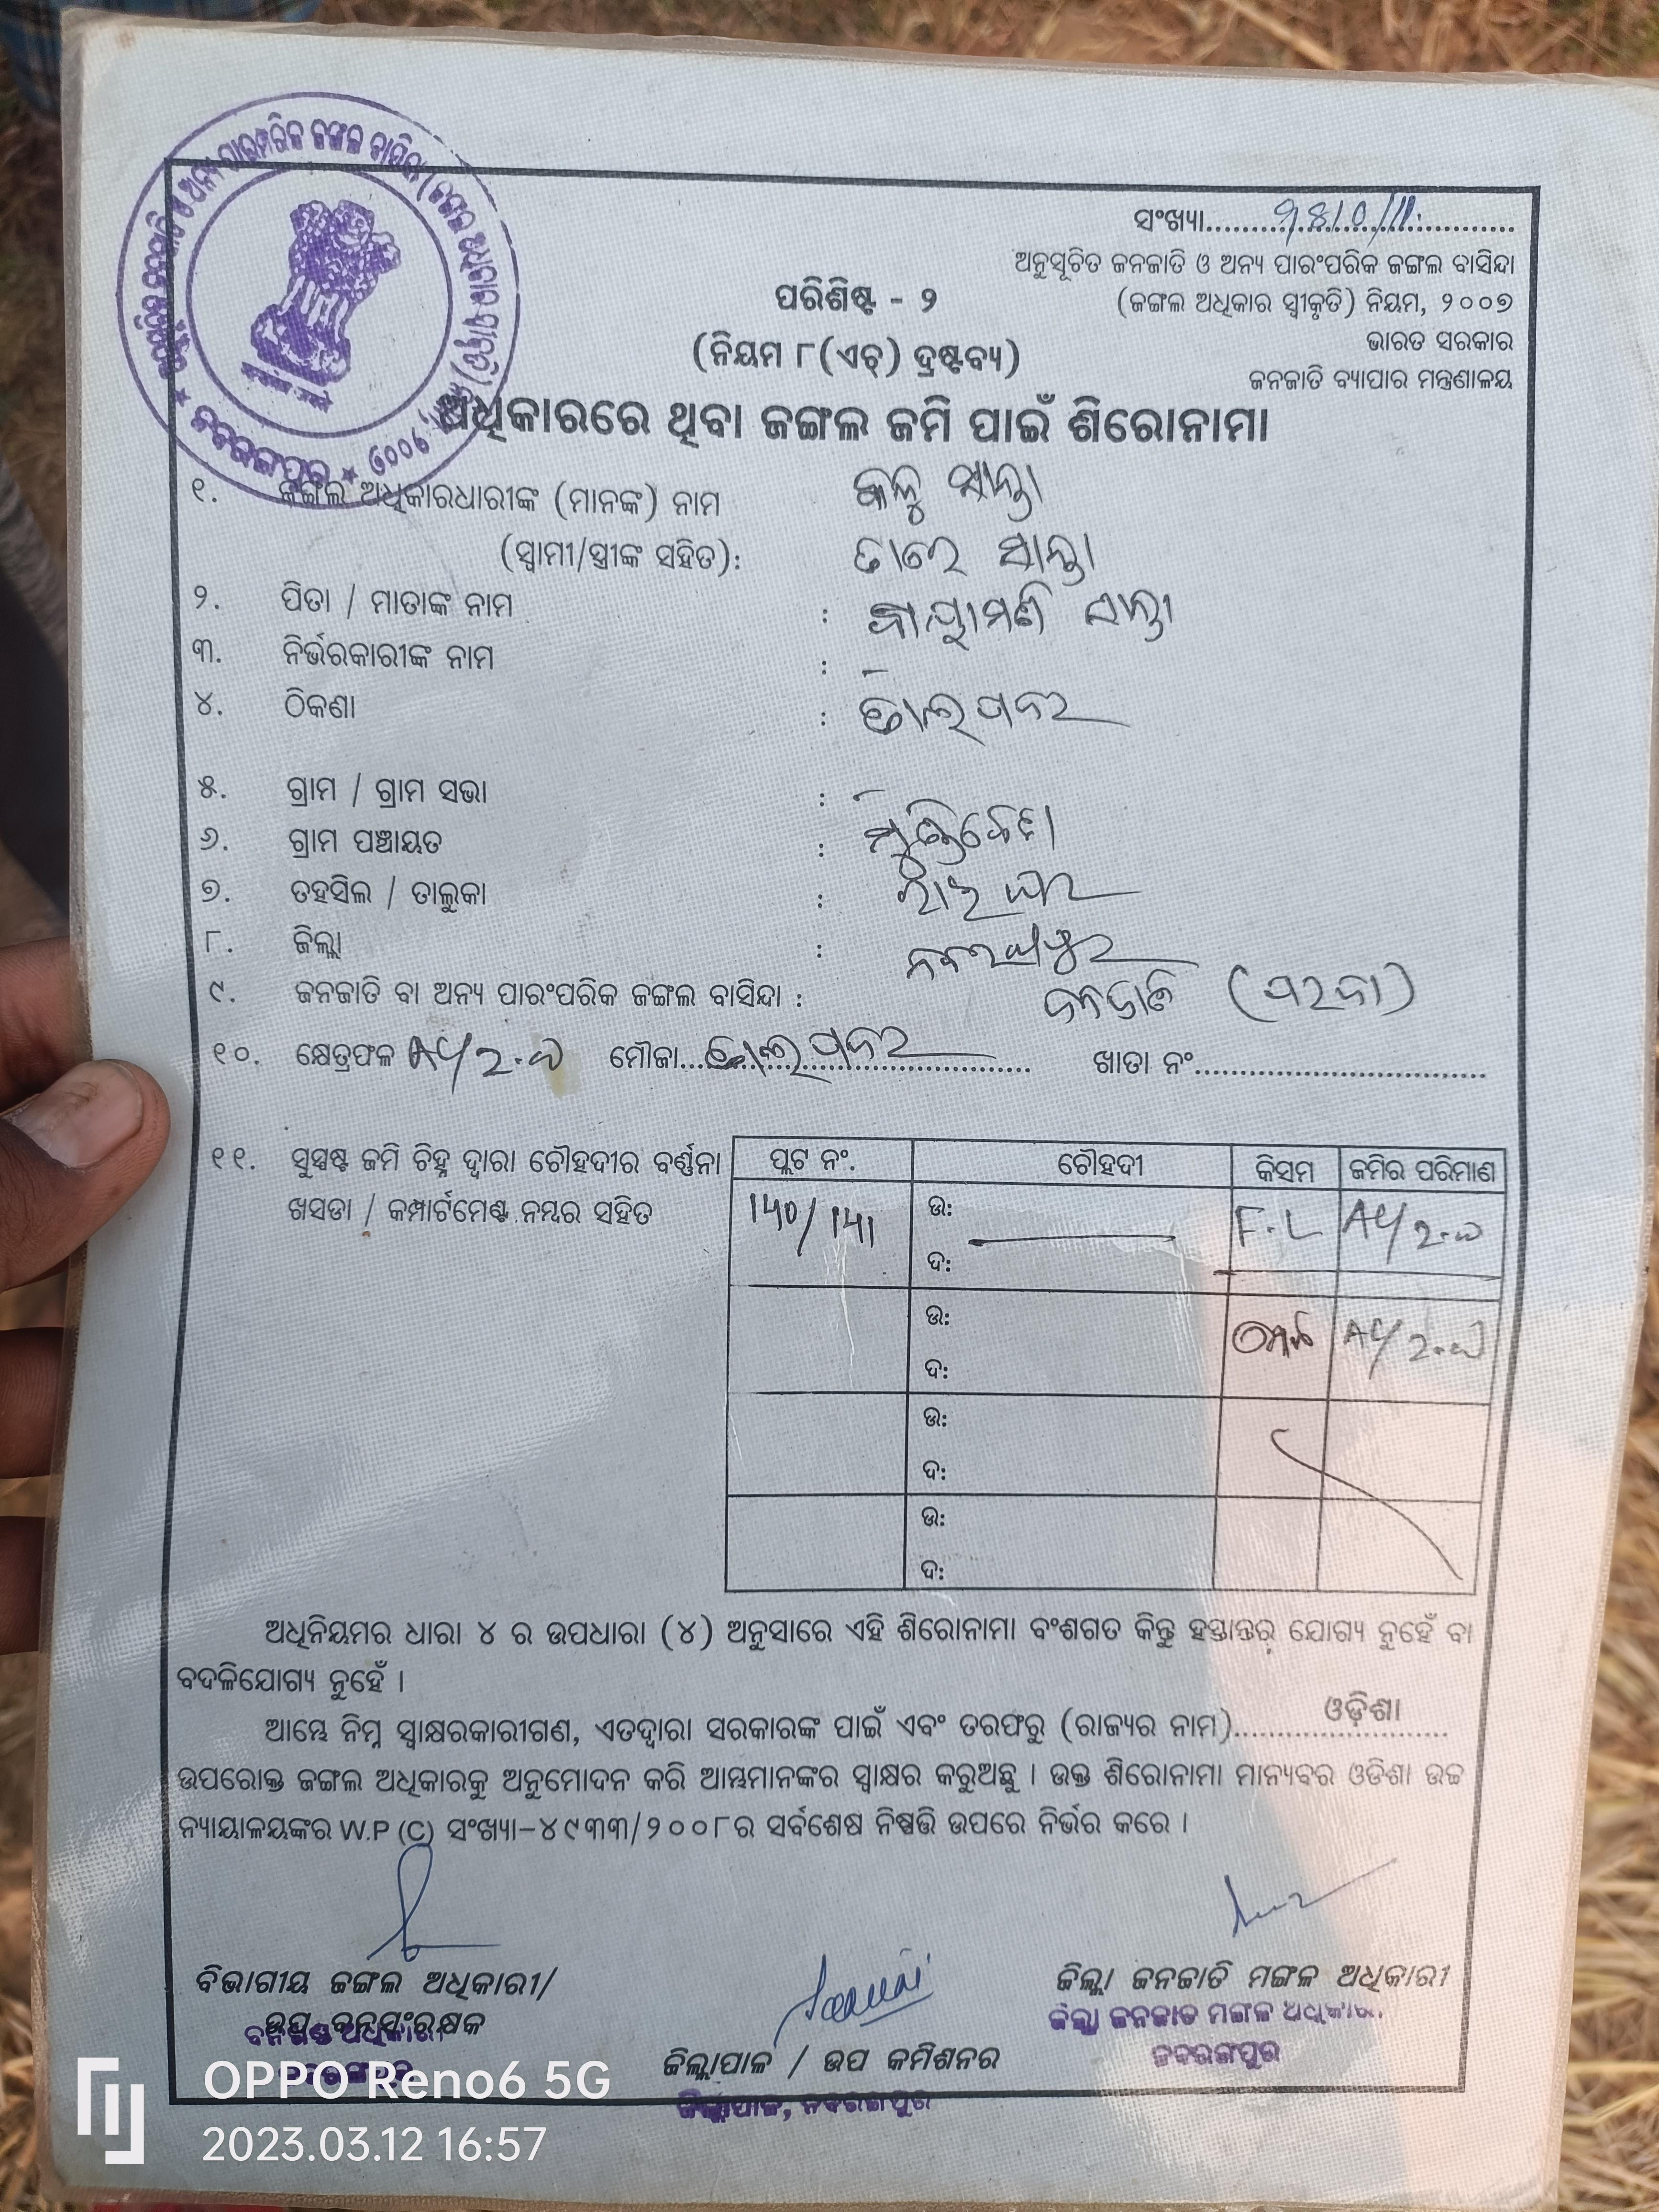 ସଂଖ୍ୟା
ଅନୁସୂଚିତ ଜନଜାତି ଓ ଅନ୍ୟ ପାରଂପରିକ ଜଙ୍ଗଲ ବାସିନ୍ଦା
(ଜଙ୍ଗଲ ଅଧିକାର ସ୍ୱୀକୃତି) ନିୟମ, ୨୦୦୭
ଭାରତ ସରକାର
ଜନଜାତି ବ୍ୟାପାର ମନ୍ତ୍ରଣାଳୟ
ପରିଶିଷ୍ଟ - ୨
(ନିୟମ ୮(ଏଚ୍) ଦ୍ରଷ୍ଟବ୍ୟ)
ଅଧିକାରରେ ଥିବା ଜଙ୍ଗଲ ଜମି ପାଇଁ ଶିରୋନାମା
୧. ଜଙ୍ଗଲ ଅଧିକାରଧାରୀଙ୍କ (ମାନଙ୍କ) ନାମ
(ସ୍ୱାମୀ/ସ୍ତ୍ରୀଙ୍କ ସହିତ):
୨. ପିତା / ମାତାଙ୍କ ନାମ :
୩. ନିର୍ଭରକାରୀଙ୍କ ନାମ : –
୪. ଠିକଣା :
୫. ଗ୍ରାମ / ଗ୍ରାମ ସଭା : –
୬. ଗ୍ରାମ ପଞ୍ଚାୟତ :
୭. ତହସିଲ / ତାଲୁକା : ରାଇଘର
୮. ଜିଲ୍ଲା : ନବରଙ୍ଗପୁର
୯. ଜନଜାତି ବା ଅନ୍ୟ ପାରଂପରିକ ଜଙ୍ଗଲ ବାସିନ୍ଦା : ଜନଜାତି
୧୦. କ୍ଷେତ୍ରଫଳ ମୌଜା ଖାତା ନଂ
୧୧. ସୁସ୍ପଷ୍ଟ ଜମି ଚିହ୍ନ ଦ୍ୱାରା ଚୌହଦୀର ବର୍ଣ୍ଣନା
ଖସଡା / କମ୍ପାର୍ଟମେଣ୍ଟ ନମ୍ବର ସହିତ
ପ୍ଲଟ ନଂ. ଚୌହଦୀ କିସମ ଜମିର ପରିମାଣ
140/141 ଉ: F.L
ଦ:
ଉ:
ଦ:
ଉ:
ଦ:
ଉ:
ଦ:
ଅଧିନିୟମର ଧାରା ୪ ର ଉପଧାରା (୪) ଅନୁସାରେ ଏହି ଶିରୋନାମା ବଂଶଗତ କିନ୍ତୁ ହସ୍ତାନ୍ତର ଯୋଗ୍ୟ ନୁହେଁ ବା
ବଦଳିଯୋଗ୍ୟ ନୁହେଁ ।
ଆମ୍ଭେ ନିମ୍ନ ସ୍ୱାକ୍ଷରକାରୀଗଣ, ଏତଦ୍ୱାରା ସରକାରଙ୍କ ପାଇଁ ଏବଂ ତରଫରୁ (ରାଜ୍ୟର ନାମ) ଓଡ଼ିଶା
ଉପରୋକ୍ତ ଜଙ୍ଗଲ ଅଧିକାରକୁ ଅନୁମୋଦନ କରି ଆମ୍ଭମାନଙ୍କର ସ୍ୱାକ୍ଷର କରୁଅଛୁ । ଉକ୍ତ ଶିରୋନାମା ମାନ୍ୟବର ଓଡିଶା ଉଚ୍ଚ
ନ୍ୟାୟାଳୟଙ୍କର W.P (C) ସଂଖ୍ୟା-୪୯୩୩/୨୦୦୮ର ସର୍ବଶେଷ ନିଷ୍ପତ୍ତି ଉପରେ ନିର୍ଭର କରେ ।
ବିଭାଗୀୟ ଜଙ୍ଗଲ ଅଧିକାରୀ/
ଉପ ବନସଂରକ୍ଷକ
ଜିଲ୍ଲାପାଳ / ଉପ କମିଶନର
ଜିଲ୍ଲାପାଳ, ନବରଙ୍ଗପୁର
ଜିଲ୍ଲା ଜନଜାତି ମଙ୍ଗଳ ଅଧିକାରୀ
ଜିଲ୍ଲା ଜନଜାତି ମଙ୍ଗଳ ଅଧିକାରୀ
ନବରଙ୍ଗପୁର
OPPO Reno6 5G
2023.03.12 16:57